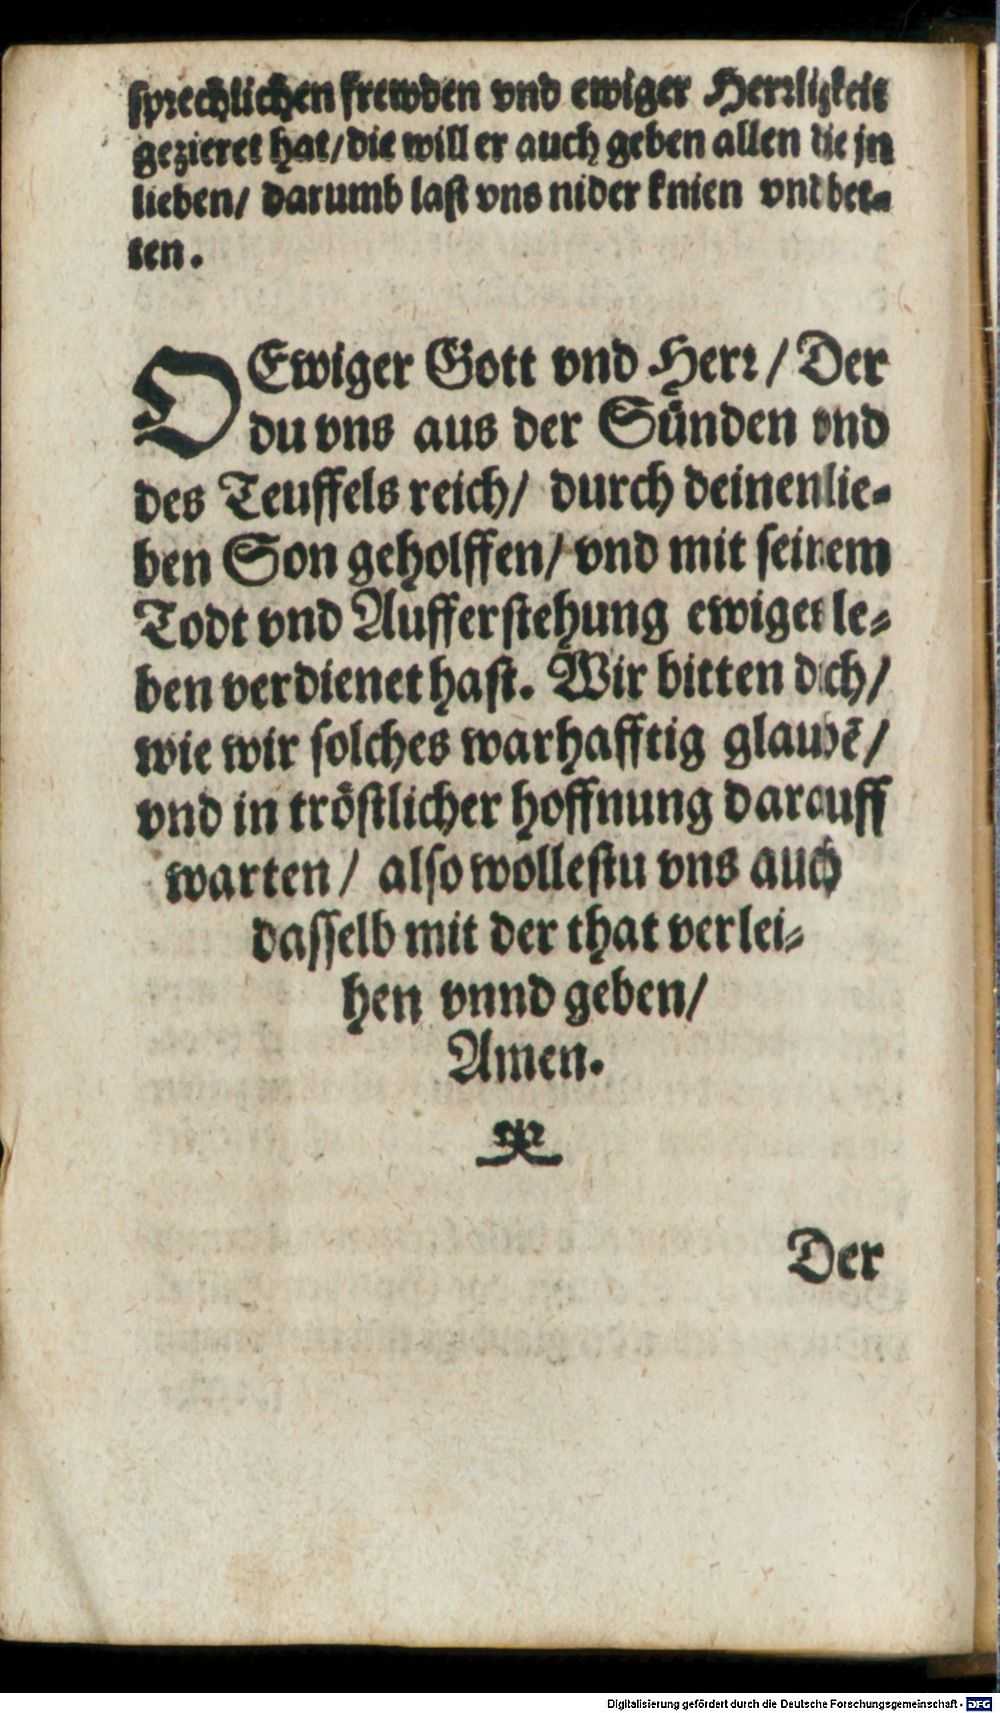 sprechlichen frewden vnd ewiger Herrligkeit
gezieret hat/ die will er auch geben allen die jn
lieben/ darumb last vns nider knien vnd bet-
ten.
O Ewiger Gott vnd Herr/ Der
du vns aus der Sünden vnd
des Teuffels reich/ durch deinen lie-
ben Son geholffen/ vnd mit seinem
Todt vnd Aufferstehung ewiges le-
ben verdienet hast. Wir bitten dich/
wie wir solches warhafftig glaubē/
vnd in tröstlicher hoffnung darauff
warten/ also wollestu vns auch
dasselb mit der that verlei-
hen vnnd geben/
Amen.
Der
Digitalisierung gefördert durch die Deutsche Forschungsgemeinschaft - DFG